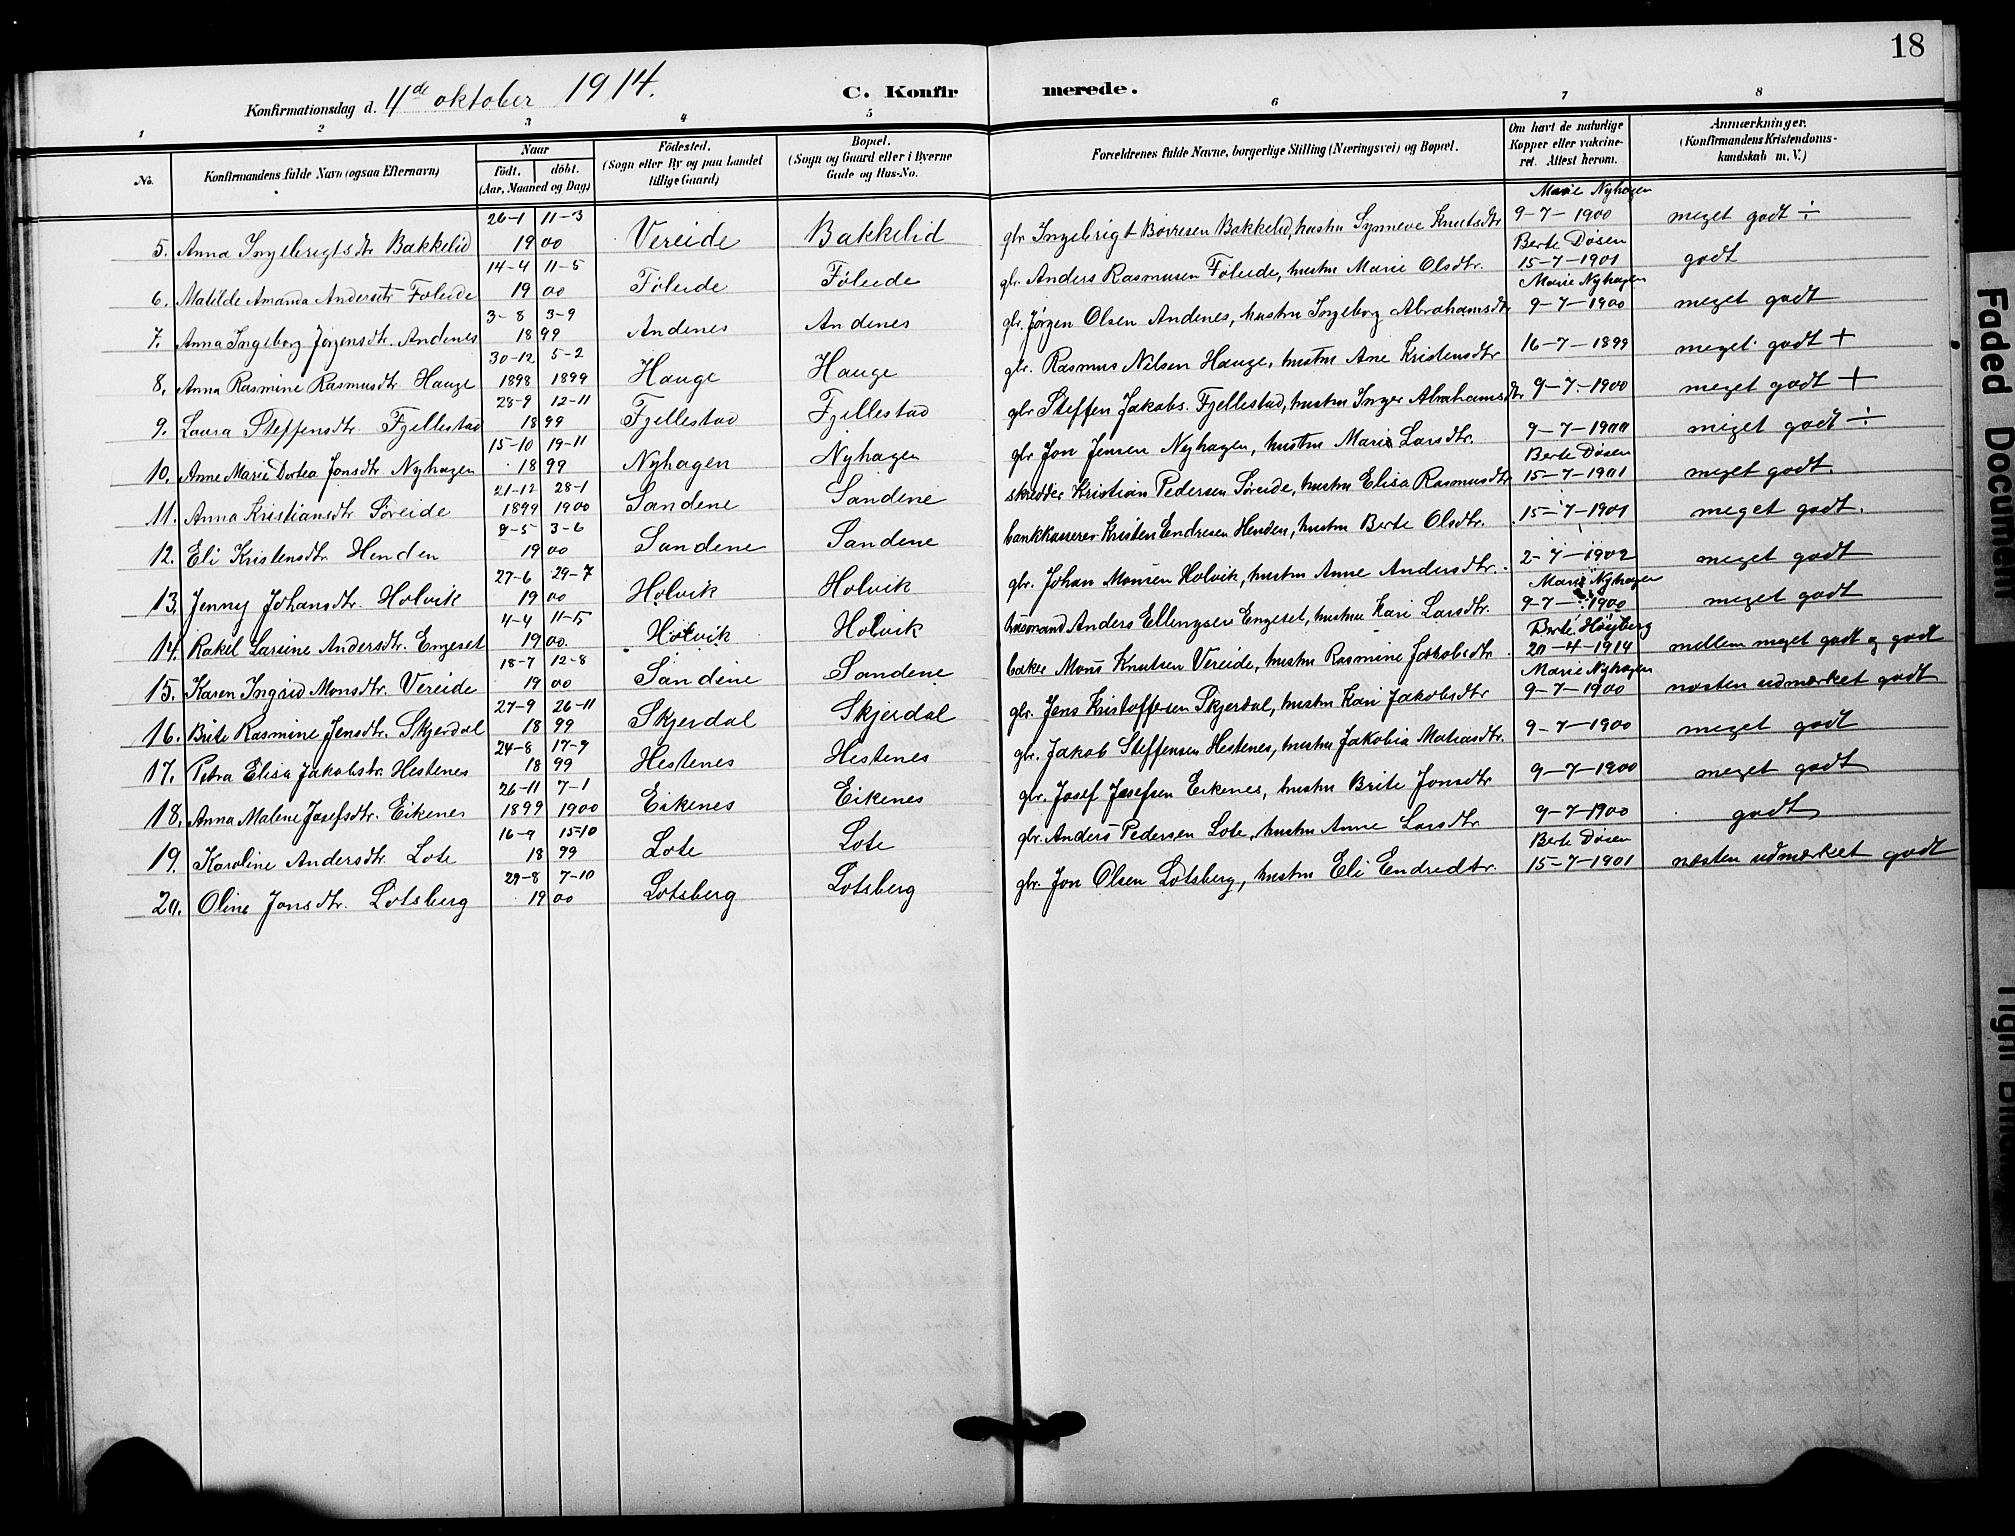 18
Konfirmationsdag d. 4de oktober 1914. C. Konfirmerede.
1 2 3 4 5 6 7 8
No. Konfirmandens fulde Navn (ogsaa Efternavn) Naar födt. döbt. (Aar, Maaned og Dag) Födested. (Sogn eller By og paa Landet tillige Gaard) Bopæl. (Sogn og Gaard eller i Byerne Gade og Hus-No. Forældrenes fulde Navne, borgerlige Stilling (Næringsvei) og Bopæl. Om havt de naturlige Kopper eller vakcineret. Attest herom. Anmærkninger. (Konfirmandens Kristendomskundskab m. V.)
5. Anna Ingebrigtsdtr Bakkelid 26-1 11-3 1900 Vereide Bakkelid gbr Ingebrigt Børresen Bakkelid, hustru Synneve Knutsdtr Marie Nyhagen 9-7-1900 meget godt ÷
6. Matilde Amanda Andersdtr Føleide 14-4 11-5 1900 Føleide Føleide gbr. Anders Rasmusen Føleide, hustru Marie Olsdtr. Berte Døsen 15-7-1901 godt
7. Anna Ingeborg Jørgensdtr. Andenes 3-8 3-9 1899 Andenes Andenes gbr. Jørgen Olsen Andenes, hustru Ingeborg Abrahamsdtr Marie Nyhagen 9-7-1900 meget godt
8. Anna Rasmine Rasmusdtr Hauge 30-12 5-2 1898 1899 Hauge Hauge gbr. Rasmus Nilsen Hauge, hustru Ane Kristensdtr 16-7-1899 meget godt +
9. Laura Steffensdtr. Fjellestad 28-9 12-11 1899 Fjellestad Fjellestad gbr Steffen Jakobs. Fjellestad, hustru Inger Abrahamsdtr 9-7-1900 meget godt +
10. Anne Marie Dortea Jonsdtr Nyhagen 15-10 19-11 1899 Nyhagen Nyhagen gbr Jon Jensen Nyhagen, hustru Marie Larsdtr. 9-7-1900 meget godt ÷
11. Anna Kristiansdtr Søreide 21-12 28-1 1899 1900 Sandene Sandene skredder Kristian Pedersen Søreide, hustru Elisa Rasmusdtr Berte Døsen 15-7-1901 meget godt
12. Eli Kristensdtr Henden 9-5 3-6 1900 Sandene Sandene bankkasserer Kristen Endresen Henden, hustru Berte Olsdtr. 15-7-1901 meget godt.
13. Jenny Johansdtr. Holvik 27-6 29-7 1900 Holvik Holvik gbr. Johan Monsen Holvik, hustru Anne Andersdtr. 2-7-1902 meget godt
14. Rakel Larsine Andersdtr. Engeset 4-4 11-5 1900 Holvik Holvik husmand Anders Ellengsen Engeset, hustru Kari Larsdtr. Marie Nyhagen 9-7-1900 meget godt
15. Karen Ingrid Monsdtr. Vereide 18-7 12-8 1900 Sandene Sandene baker Mons Knutsen Vereide, hustru Rasmine Jakobsdtr. Berte Høyberg 20-4-1914 mellem meget godt og godt
16. Brite Rasmine Jensdtr. Skjerdal 27-9 26-11 1899 Skjerdal Skjerdal gbr. Jens Kristoffersen Skjerdal, hustru Kari Jakobsdtr Marie Nyhagen 9-7-1900 næsten udmærket godt
17. Petra Elisa Jakobsdtr. Hestenes 24-8 17-9 1899 Hestenes Hestenes gbr. Jakob Steffensen Hestenes, hustru Jakobia Matiasdtr. 9-7-1900 meget godt
18. Anna Malene Josefsdtr. Eikenes 26-11 7-1 1899 1900 Eikenes Eikenes gbr. Josef Josefsen Eikenes, hustru Brite Jonsdtr 9-7-1900 meget godt
19. Karoline Andersdtr. Lote 16-9 15-10 1899 Lote Lote gbr. Anders Pedersen Lote, hustru Anne Larsdtr. 9-7-1900 godt
20. Oline Jonsdtr. Lotsberg 29-8 7-10 1900 Lotsberg Lotsberg gbr. Jon Olsen Lotsberg, hustru Eli Endredtr. Berte Døsen 15-7-1901 næsten udmærket godt
Faded Document